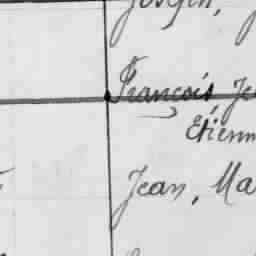 Joseph, J
François Je
Etienn
Jean, Ma